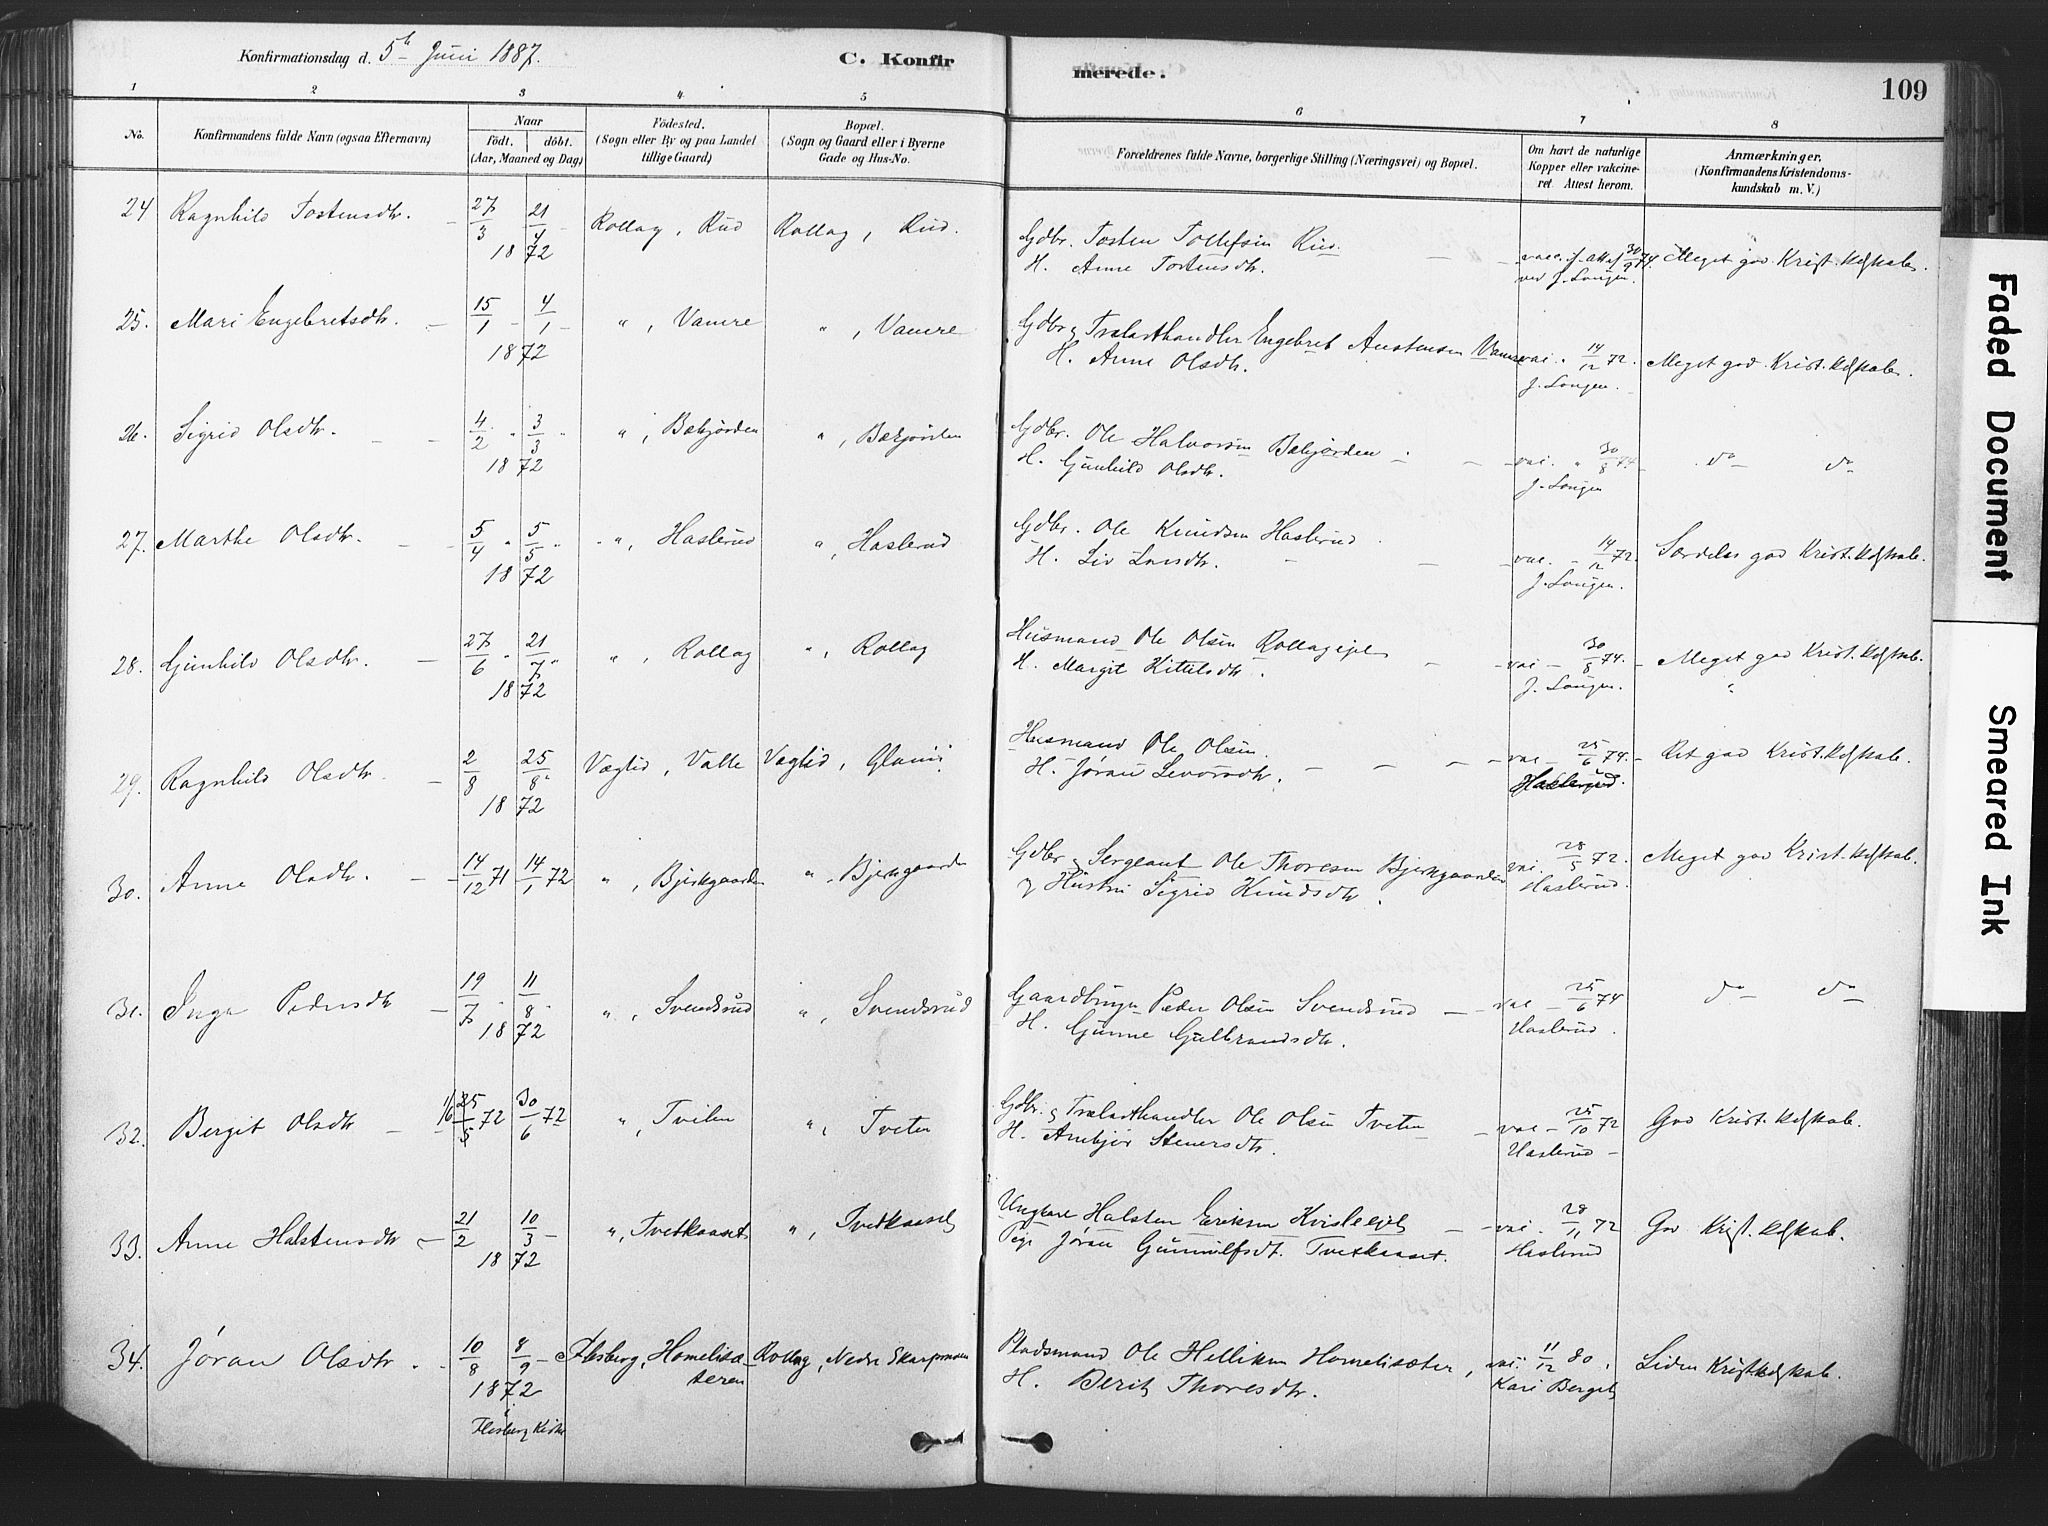 Konfirmationsdag d. 5te Juni 1887.
C. Konfirmerede.
109
1 2 3 4 5 6 7 8
No.
Konfirmandens fulde Navn (ogsaa Efternavn)
Naar
födt. döbt.
(Aar, Maaned og Dag)
Födested.
(Sogn eller By og paa Landet
tillige Gaard)
Bopæl.
(Sogn og Gaard eller i Byerne
Gade og Hus-No.
Forældrenes fulde Navne, borgerlige Stilling (Næringsvei) og Bopæl.
Om havt de naturlige
Kopper eller vakcine-
ret. Attest herom.
Anmærkninger.
(Konfirmandens Kristendoms-
kundskab m. V.)
24 Ragnhild Tostensdtr. 27/3 21/4 1872 Rollag, Rud Rollag, Rud. Gdbr. Tosten Tollefsen Rud
H. Anne Tostensdtr. vacc. f. att. 30/9 74. ved J. Langen. Meget god Krist.kdskab.
25. Mari Engebretsdtr. 15/1 4/1 1872 ", Vamre ", Vamre Gdbr. & Trælasthandler Engebret Austensen Vamre
H. Anne Olsdtr. vac. " 14/12 72. J. Langen. Meget god Krist.kdskab.
26. Sigrid Olsdtr. 4/2 3/3 1872 ", Bækjorden ", Bækjorden Gdbr. Ole Halvorsen Bækjorden
H. Gunhild Olsdtr. vac. " 30/8 74. J. Langen do do
27. Marthe Olsdtr. 5/4 5/5 1872 ", Haslerud ", Haslerud Gdbr. Ole Knudsen Haslerud
H. Liv Larsdtr. vac. 14/12 72 J. Langen. Særdeles god Krist.kdskab.
28. Gunhild Olsdtr. 27/6 21/7 1872 ", Rollag ", Rollag Husmand Ole Olsen Rollageje
H. Margit Kittelsdtr. vac 30/8 74. J. Langen. Meget god Krist.kdskab.
29. Ragnhild Olsdtr. 2/8 25/8 1872 Væglid, Valle Væglid, Husmand Ole Olsen.
H. Jøran Levorsdtr. vac 25/6 74. Haslerud. Ret god Krist.kdskab.
30. Anne Olsdtr. 14/12 71 14/1 72 ", Bjerkgaarden ", Bjerkgaarden Gdbr & Sergeant Ole Thoresen Bjerkgaarden
og Hustru Sigrid Knudsdtr. vac. 28/5 72. Haslerud. Meget god Krist.kdskab.
31. Inga Pedersdtr 19/7 11/8 1872 ", Svendsrud ", Svendsrud Gaardbruger Peder Olsen Svendsrud
H. Gunne Gulbrandsdtr. vac 25/6 74 Haslerud. do do
32. Bergit Olsdtr 25/5 72 30/6 72 ", Tveten ", Tveten Gdbr. & Trælasthandler Ole Olsen Tveten
H. Ambjør Stenersdtr. vac 25/10 72 Haslerud God Krist.kdskab.
33. Anne Halstensdtr 21/2 10/3 1872 ", Tvetkaaset ", Tvetkaaset Ungkarl Halsten Eriksen Kvisleejet
Pige Jøran Gunnulfsdt. Tvetkaaset. vac. 28/11 72 Haslerud God Krist.kdskab.
34. Jøran Olsdtr 10/8 8/9 1872 i Flesberg Kirke Flesberg, Homelisæteren Rollag, Nedre Skarpmoen Pladsmand Ole Helliksen Homelisæter,
H. Berit Thoresdtr. vac. 11/12 80. Kari Bergit Liden Kristkdskab.
Faded Document
Smeared Ink